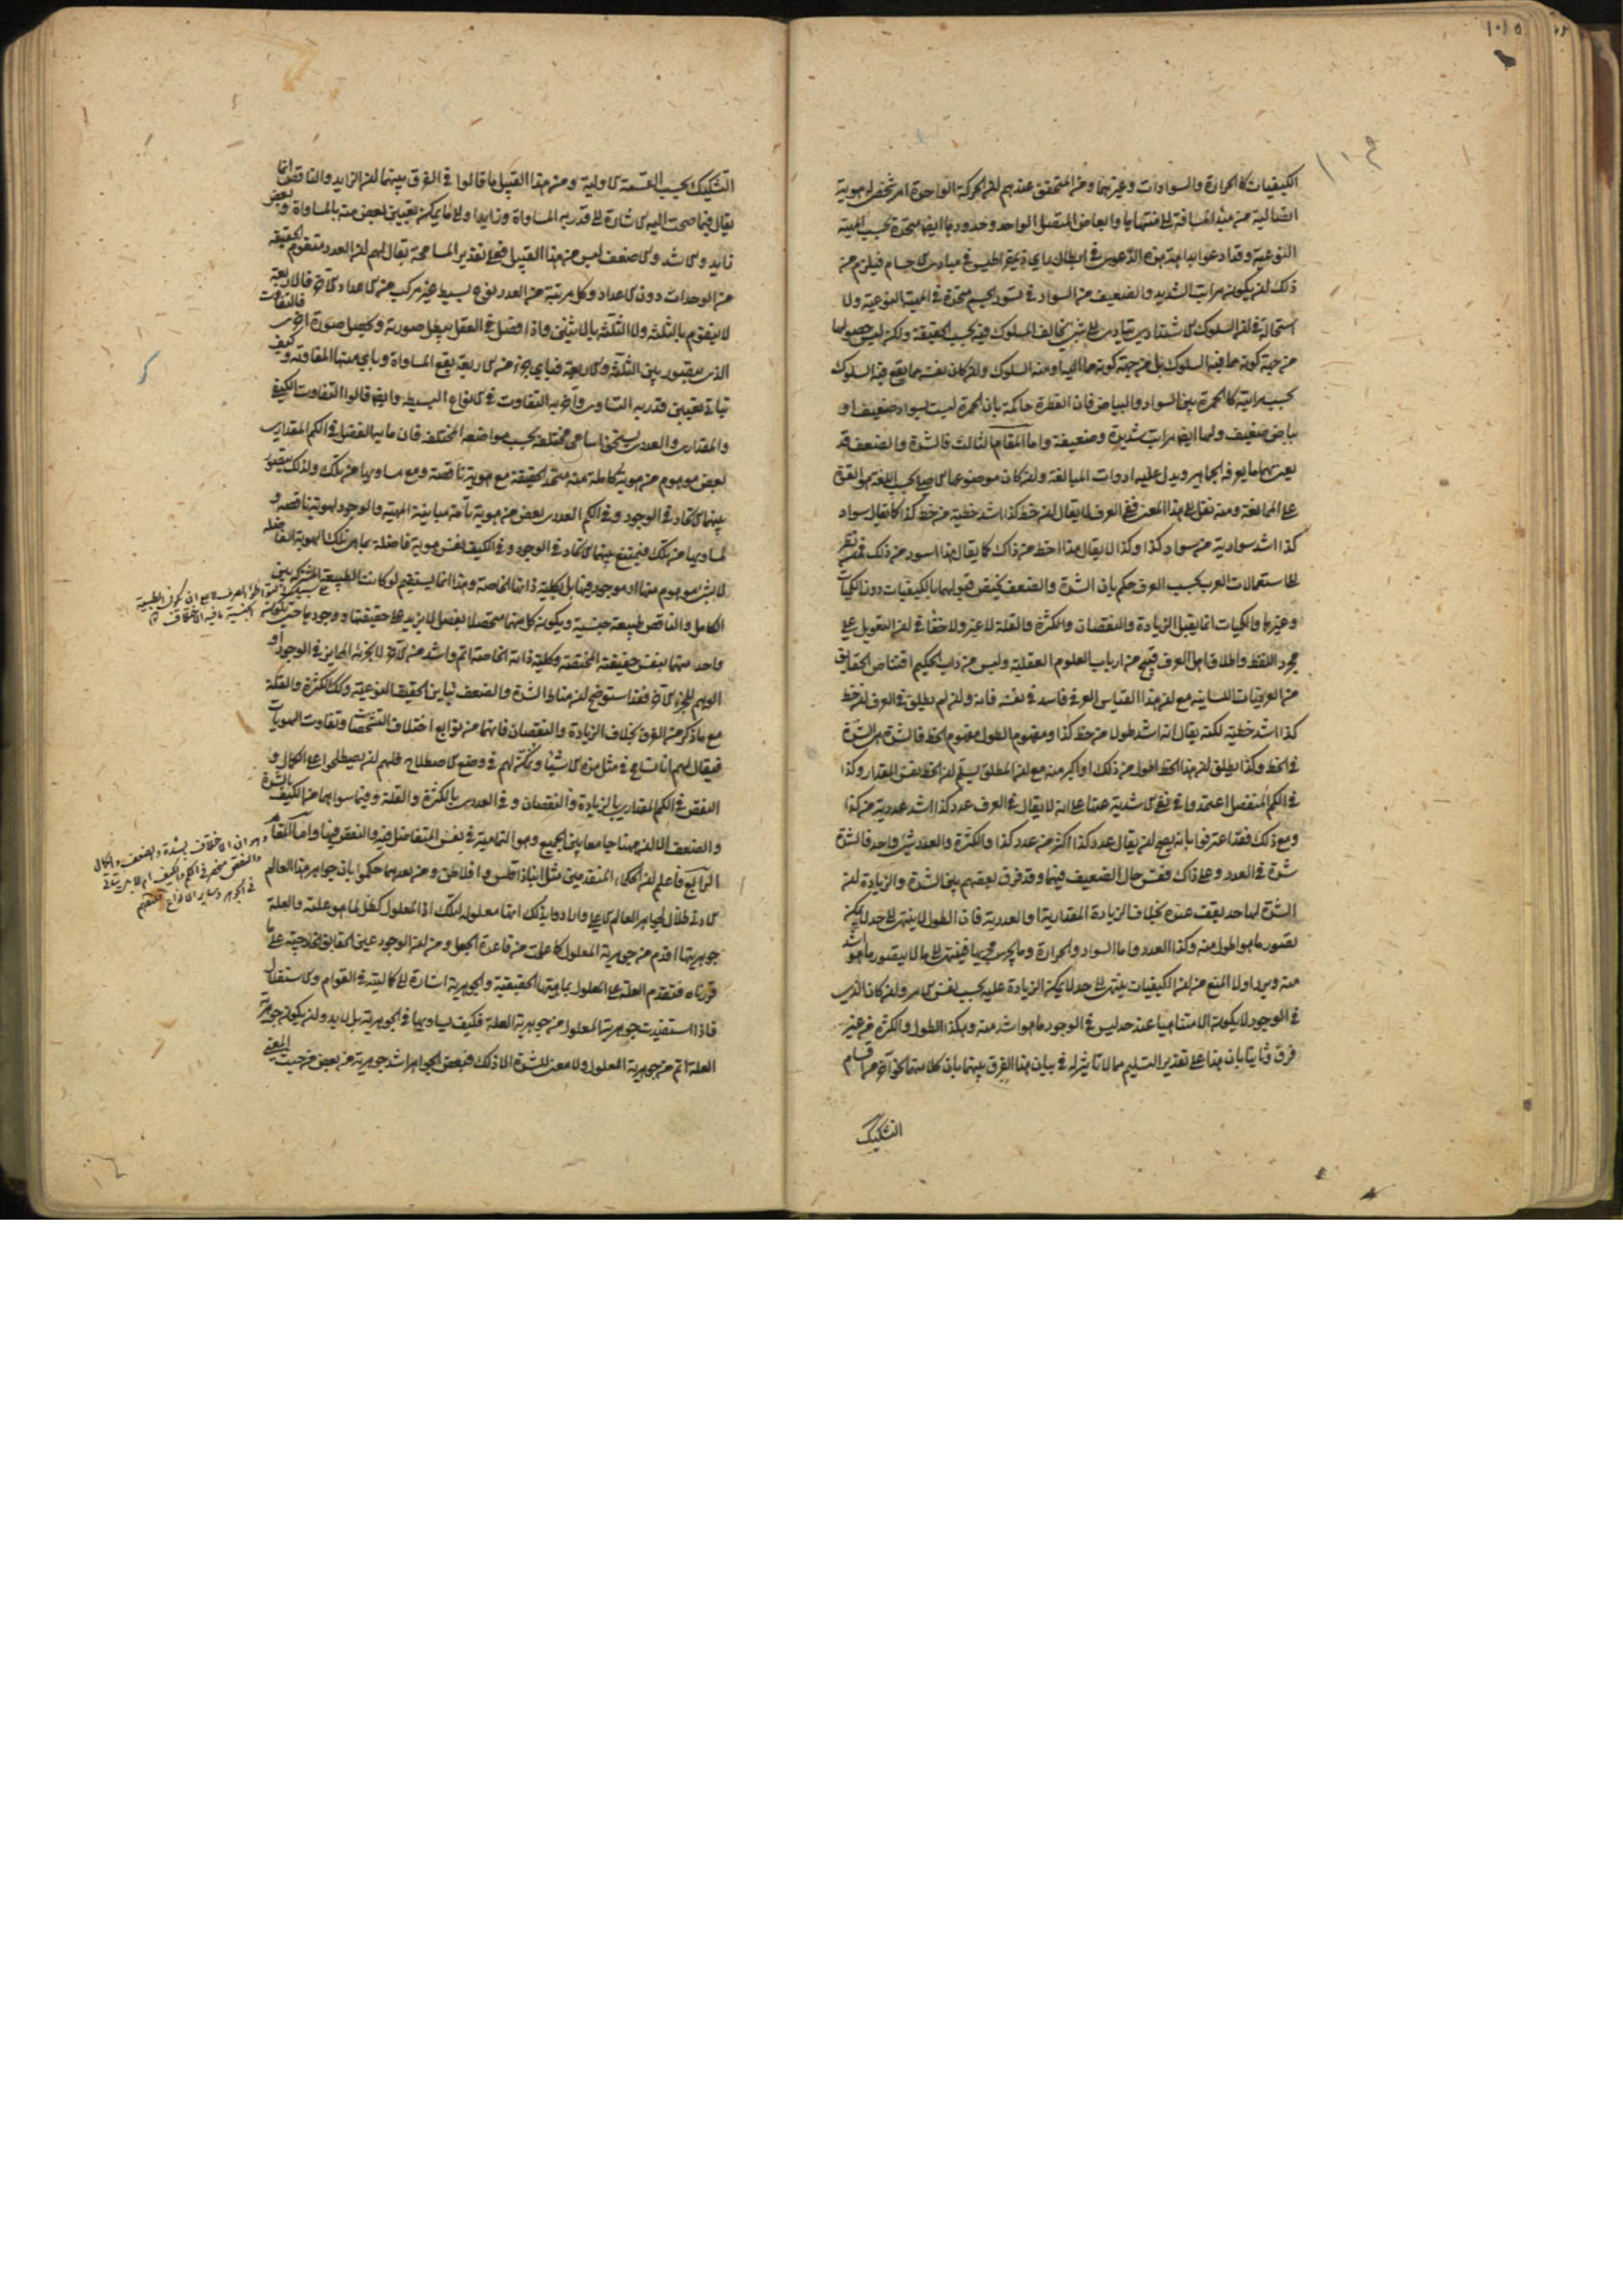 ١٠١٥
١٠٩
الكيفيات كالحرارة والسوادات وغيرهما ومن المتحقق عندهم ان الحركة الواحدة امر شخصي له هوية
اتصالية من مبدأ المسافة الى منتهاها وابعاض المتصل الواحد وحدوده ايضا متحدة بحسب المهية
النوعية وقد ادعوا بداهة هذه الدعوى في ابطال راي ذيمقراطيس في مبادي الاجسام فيلزم من
ذلك ان يكون مراتب الشديد والضعيف من السواد في تسود الجسم متحدة في المهية النوعية ولا
استحالة في ان السلوك الاشتدادي يتادى الى شيء يخالف المسلوك فيه بحسب الحقيقة ولكن ليس حصولها
من جهة كونه مما فيه السلوك بل من جهة كونه مما اليه او منه السلوك وان كان نفسه مما يقع فيه السلوك
بحسب مراتبه كالحمرة بين السواد والبياض فان الفطرة حاكمة بان الحمرة ليست بسواد ضعيف او
بياض ضعيف ولهما ايضا مراتب شديدة وضعيفة واما المقام الثالث فالشدة والضعف قد
يعنى بهما ما يعرفه الجماهير ويدل عليه ادوات المبالغة وان كان موضوعهما الاصلي بحسب اللغة هو القوة
على الممانعة ومنه نقل الى هذا المعنى ففي العرف لا يقال ان خط كذا اشد خطية من خط كذا كما يقال سواد
كذا اشد سوادية من سواد كذا وكذا لا يقال هذا اخط من ذاك كما يقال هذا اسود من ذلك فمن نظر
الى استعمالات العرب بحسب العرف حكم بان الشدة والضعف يختص قبولهما بالكيفيات دون الكميات
وغيرها والكميات انما يقبل الزيادة والنقصان والكثرة والقلة لا غير ولا خفاء في ان التعويل على
مجرد اللفظ واطلاق اهل العرف قبيح من ارباب العلوم العقلية وليس من داب الحكيم اقتناص الحقايق
من العرفيات اللسانية مع ان هذا القياس العرفي فاسد في نفسه فانه وان لم يطلق في العرف ان خط
كذا اشد خطية لكنه يقال انه اشد طولا من خط كذا ومفهوم الطول مفهوم الخط فالشدة هي الشدة
في الخط وكذا يطلق ان هذا الخط اطول من ذلك او اكبر منه مع ان المطلق يسلم ان الخط نفس المقدار وكذا
في الكم المنفصل اعتمدوا في نفي الاشدية عنها على انه لا يقال في العرف عدد كذا اشد عددية من كذا
ومع ذلك فقد اعترفوا بانه يصح ان يقال عدد كذا اكثر من عدد كذا والكثرة والعدد شيء واحد فالشدة
شدة في العدد وعلى ذاك فقس حال الضعيف فيهما وقد فرق بعضهم بين الشدة والزيادة ان
الشدة لها حد يقف عنده بخلاف الزيادة المقدارية والعددية فان الطول لا ينتهي الى حد لا يمكن
تصور ما هو اطول منه وكذا العدد واما السواد والحرارة وما يجري مجريها فينتهي الى ما لا يتصور ما هو اشد
منه ويرد اولا المنع من ان الكيفيات ينتهي الى حد لا يمكن الزيادة عليه بحسب نفس الامر وان كان الذي
في الوجود لا يكون الا متناهيا عند حد ليس في الوجود ما هو اشد منه وهكذا الطول والكثرة من غير
فرق وثانيا بان هذا على تقدير التسليم مما لا تاثير له في بيان هذا الفرق بينهما بان كلا منهما نحو آخر من اقسام
التشكيك
التشكيك بحسب القسمة الاولية ومن هذا القبيل ما قالوا في الفرق بينهما ان الزايد والناقص انما
يقال فيما صحت اليه الاشارة الى قدر به المساواة وزايد اولا فما يمكن تعيين بعض منه بالمساواة وبعض
زايد والاشد والاضعف ليس من هذا القبيل فعلى تقدير المسامحة يقال لهم ان العدد متقوم الحقيقة
من الوحدات دون الاعداد وكل مرتبة من العدد نوع بسيط غير مركب من الاعداد الآخر فالاربعة
لا يتقوم بالثلثة ولا الثلثة بالاثنين واذا فصل في العقل يبطل صورته ويحصل صورة اخرى فالتفاوت
الذي يتصور بين الثلثة والاربعة فباي جزء من الاربعة يقع المساواة وبايّ منها المفاوتة وكيف
يتاتى تعيين قدر به التساوي وآخر به التفاوت في الانواع البسيطة وايضا قالوا التفاوت الكيفي
والمقداري والعددي يستحق اسامي مختلفة بحسب مواضعه المختلفة فان ما به الفضل في الكم المقداري
بعض موهوم من هوية كاملة منه متحد الحقيقة مع هوية ناقصة ومع مساويها من تلك ولذلك يتصور
بينهما الاتحاد في الوجود وفي الكم العددي بعض من هوية تامة مباينة المهية والوجود لهوية ناقصة و
لمساويها من تلك فيمتنع بينهما الاتحاد في الوجود وفي الكيف نفس هوية فاضلة بما هي تلك الهوية الفاضلة
لا بشيء موهوم منها او موجود فيها بل بكلية ذاتها الخاصة وهذا انما يستقيم لو كانت الطبيعة المشتركة بين
الكامل والناقص طبيعة جنسية ويكون كل منهما متحصلا بفصل لا يزيد على حقيقتها ووجودها حتى يكون
واحد منهما بنفس حقيقته المختصة وكلية ذاته الخاصة اتم واشد من الآخر لا بجزئه الممايز في الوجود او
الوهم للجزء الآخر فقد استوضح ان مناط الشدة والضعف تباين الحقيقة النوعية وكذلك الكثرة والقلة
مع ما ذكر من الفرق بخلاف الزيادة والنقصان فانهما من توابع اختلاف التشخصات وتفاوت الهويات
فيقال لهم انا نسامح في مثل هذه الاشياء ونمكنهم في وضع الاصطلاح فلهم ان يصطلحوا على الكمال و
النقص في الكم المقداري بالزيادة والنقصان وفي العددي بالكثرة والقلة وفيما سواهما من الكيف بالشدة
والضعف الا ان ههنا جامعا بين الجميع وهو التمامية في نفس المتفاضل فيه والنقص فيها واما المقام
الرابع فاعلم ان الحكماء المتقدمين مثل انباذقلس وافلاطن ومن بعدهما حكموا بان جواهر هذا العالم
الادنى ظلال لجواهر العالم الاعلى وارادوا بذلك انها معلولة لتلك اذ المعلول كظل لما هو علته والعلة
جوهريتها اقدم من جوهرية المعلول كما علمت من قاعدة الجعل ومن ان الوجود عين الحقايق الخارجية على ما
قررناه فتقدم العلة على المعلول بماهيتها الحقيقية والجوهرية اشارة الى كمالية في القوام والاستقلال
فاذا استفيدت جوهرية المعلول من جوهرية العلة فكيف يساويها في الجوهرية بل لا بد وان يكون جوهرية
العلة اتم من جوهرية المعلول ولا معنى للشدة الا ذلك فبعض الجواهر اشد جوهرية من بعض من حيث المعنى